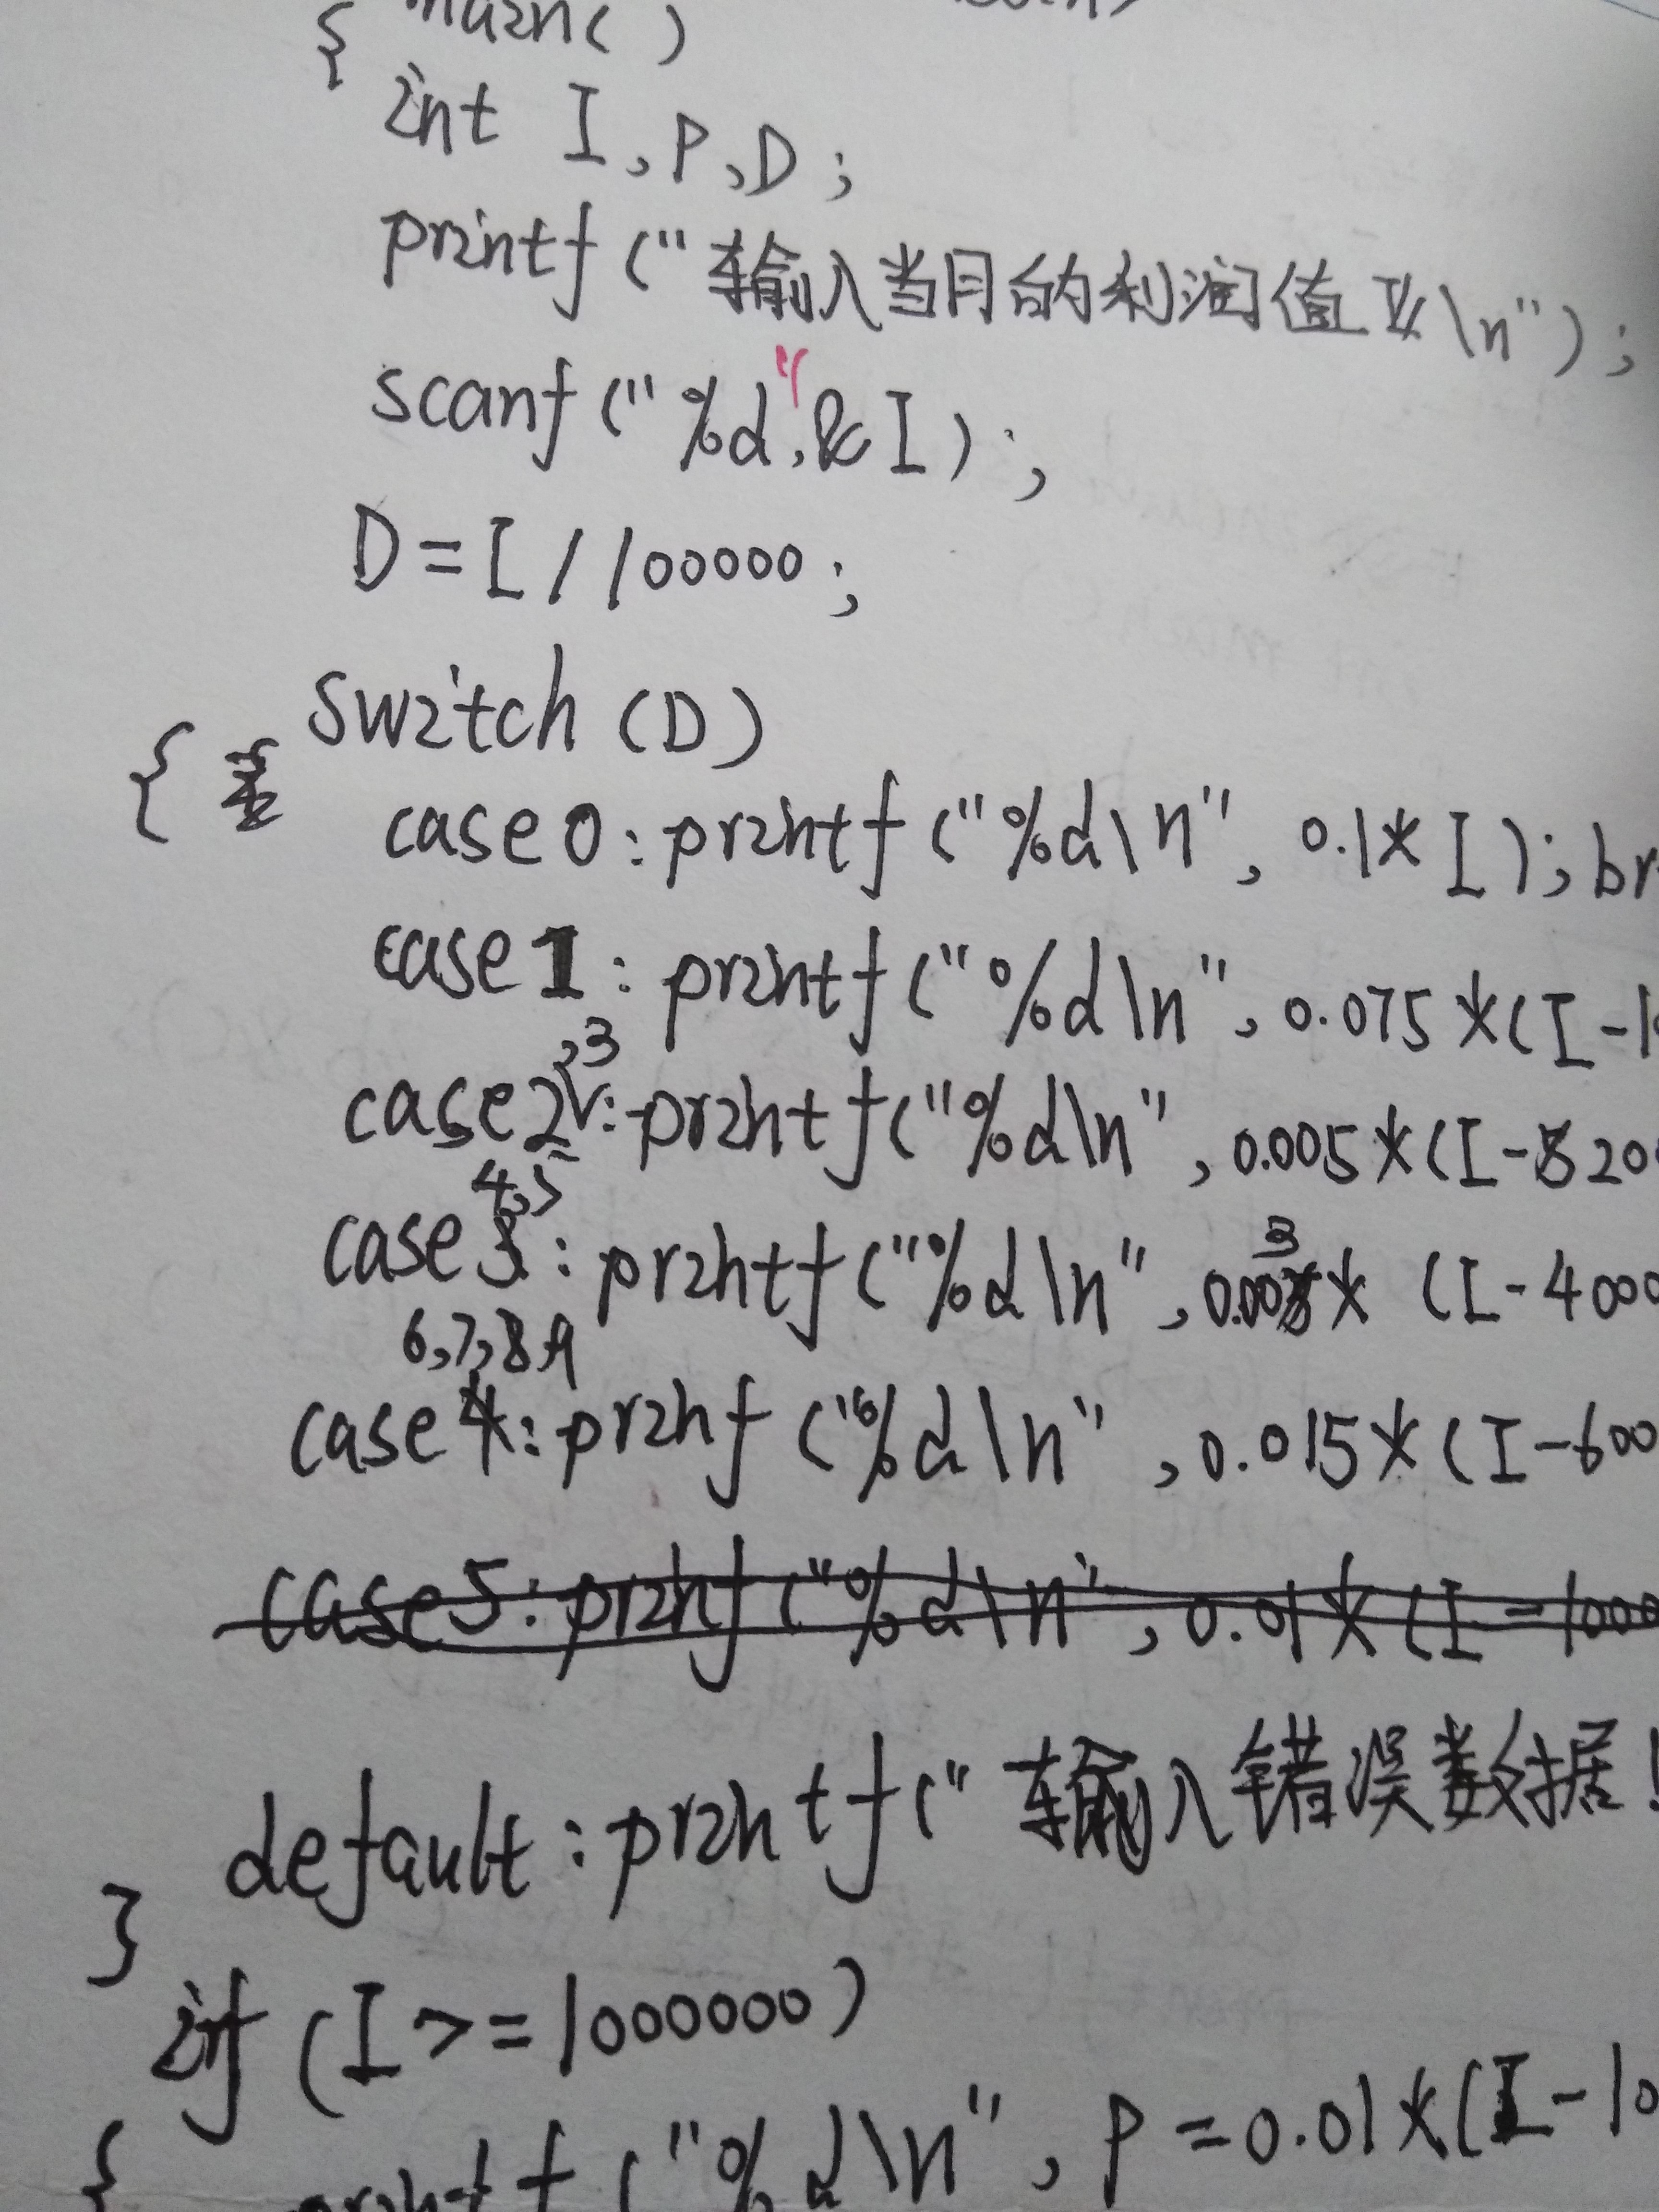 { main()
int I, P, D;
printf("输入当月的利润值I\n");
scanf("%d",&I);
D=I/100000;
switch(D)
{
case0:printf("%d\n", 0.1*I);br
case1:printf("%d\n", 0.075*(I-1
,3
case2:printf("%d\n", 0.005*(I-20
4,5
case:printf("%d\n", 0.003*(I-4000
6,7,8,9
case:prinf("%d\n", 0.015*(I-600
case5:prinf("%d\n", 0.01*(I-1000
default:printf("输入错误数据!
}
if(I>=1000000)
{ printf("%d\n", P=0.01*(I-10